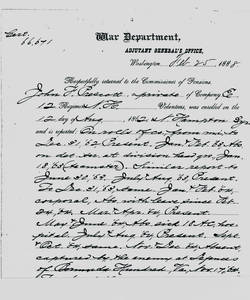 Cert.
66,571
War Department,
ADJUTANT GENERAL'S OFFICE,
Washington, Feb 25, 1888
Respectfully returned to the Commissioner of Pensions.
John F. Prescott, a private of Company E
12 Regiment N.H. Volunteers, was enrolled on the
12 day of Aug, 1862, N. Hampton 3 yrs
and is reported On rolls of co. from to
Dec. 31, 62, Present. Jan & Feb 63, Abs.
on det. ser. in division train from Jan.
63 (teamster). Similar report to
June 31, 63. July & Aug 63, Present.
To Dec. 31, 63, same. Jan & Feb 64,
corporal, Abs. with leave since Feb
64. Mar & Apr 64, Present.
May & June 64, Abs. sick 18 A.C. hos-
pital. July & Aug 64, Present. Sept
& Oct 64, same. Nov & Dec 64, Absent
captured by the enemy at
Bermuda Hundred, Va, Nov 17, 64